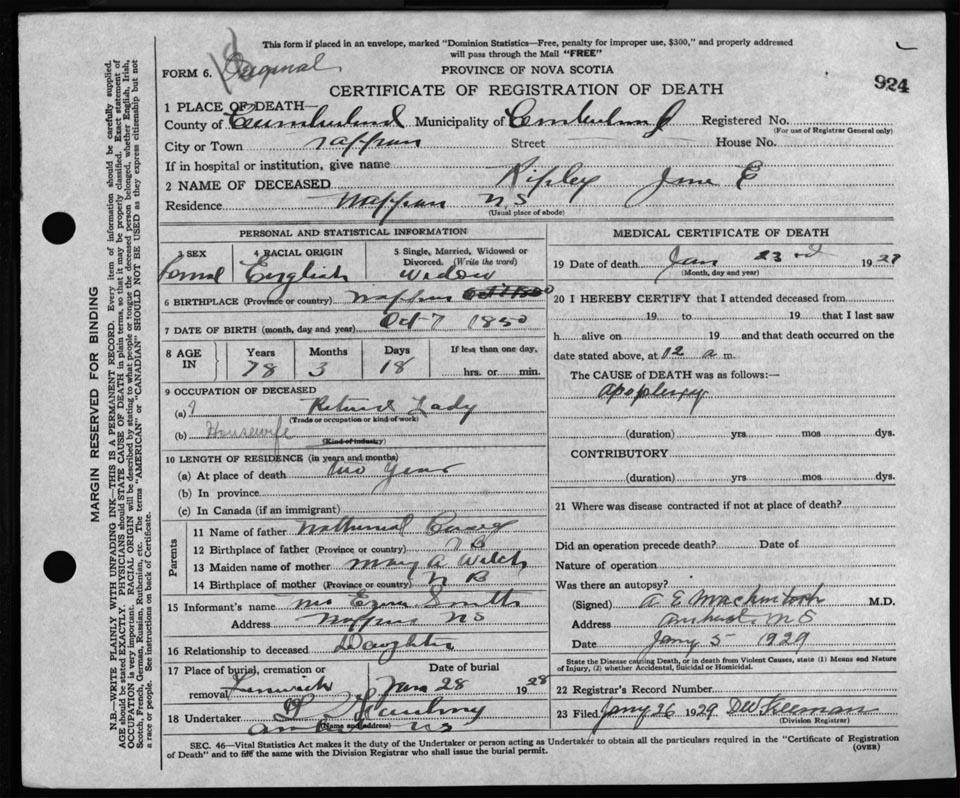 This form if placed in an envelope, marked "Dominion Statistics—Free, penalty for improper use, $300," and properly addressed
will pass through the Mail "FREE"
FORM 6. Original
PROVINCE OF NOVA SCOTIA
CERTIFICATE OF REGISTRATION OF DEATH
924
1 PLACE OF DEATH—
County of Cumberland Municipality of Registered No.
(For use of Registrar General only)
City or Town Nappan Street House No.
If in hospital or institution, give name
2 NAME OF DECEASED Ripley Jane E
Residence Nappan NS
(Usual place of abode)
PERSONAL AND STATISTICAL INFORMATION
3 SEX 4 RACIAL ORIGIN 5 Single, Married, Widowed or Divorced. (Write the word)
English Widow
6 BIRTHPLACE (Province or country) Nappan
7 DATE OF BIRTH (month, day and year) Oct 7 1850
8 AGE IN Years Months Days If less than one day,
78 3 18 hrs. or min.
9 OCCUPATION OF DECEASED
(a) Retired Lady
(Trade or occupation or kind of work)
(b) Housewife
(Kind of industry)
10 LENGTH OF RESIDENCE (in years and months)
(a) At place of death
(b) In province
(c) In Canada (if an immigrant)
Parents
11 Name of father
12 Birthplace of father (Province or country) NB
13 Maiden name of mother Mary A Welch
14 Birthplace of mother (Province or country) N B
15 Informant's name Mrs Ezra Smith
Address Nappan NS
16 Relationship to deceased Daughter
17 Place of burial, cremation or removal Fenwick
Date of burial
Jan 28 1928
18 Undertaker
(Name and address)
Amherst NS
MEDICAL CERTIFICATE OF DEATH
19 Date of death Jan 23rd
(Month, day and year)
20 I HEREBY CERTIFY that I attended deceased from
19 to 19 that I last saw
h alive on 19 and that death occurred on the
date stated above, at 12 a m.
The CAUSE of DEATH was as follows:—
apoplexy
(duration) yrs mos dys.
CONTRIBUTORY
(duration) yrs mos dys.
21 Where was disease contracted if not at place of death?
Did an operation precede death? Date of
Nature of operation
Was there an autopsy?
(Signed) A E Mackintosh M.D.
Address Amherst NS
Date Jany 5 1929
State the Disease causing Death, or in death from Violent Causes, state (1) Means and Nature
of Injury, (2) whether Accidental, Suicidal or Homicidal.
22 Registrar's Record Number
23 Filed Jany 26 1929 DW Freeman
(Division Registrar)
SEC. 46—Vital Statistics Act makes it the duty of the Undertaker or person acting as Undertaker to obtain all the particulars required in the "Certificate of Registration
of Death" and to file the same with the Division Registrar who shall issue the burial permit.
(OVER)
MARGIN RESERVED FOR BINDING
N.B.—WRITE PLAINLY WITH UNFADING INK—THIS IS A PERMANENT RECORD. Every item of information should be carefully supplied.
AGE should be stated EXACTLY. PHYSICIANS should STATE CAUSE OF DEATH in plain terms, so that it may be properly classified. Exact statement of
OCCUPATION is very important. RACIAL ORIGIN will be described by stating to what people or tongue the deceased person belonged, whether English, Irish,
Scotch, French, German, Russian, Ruthenian, etc. The terms "AMERICAN" or "CANADIAN" SHOULD NOT BE USED as they express citizenship but not
a race or people. See instructions on back of Certificate.